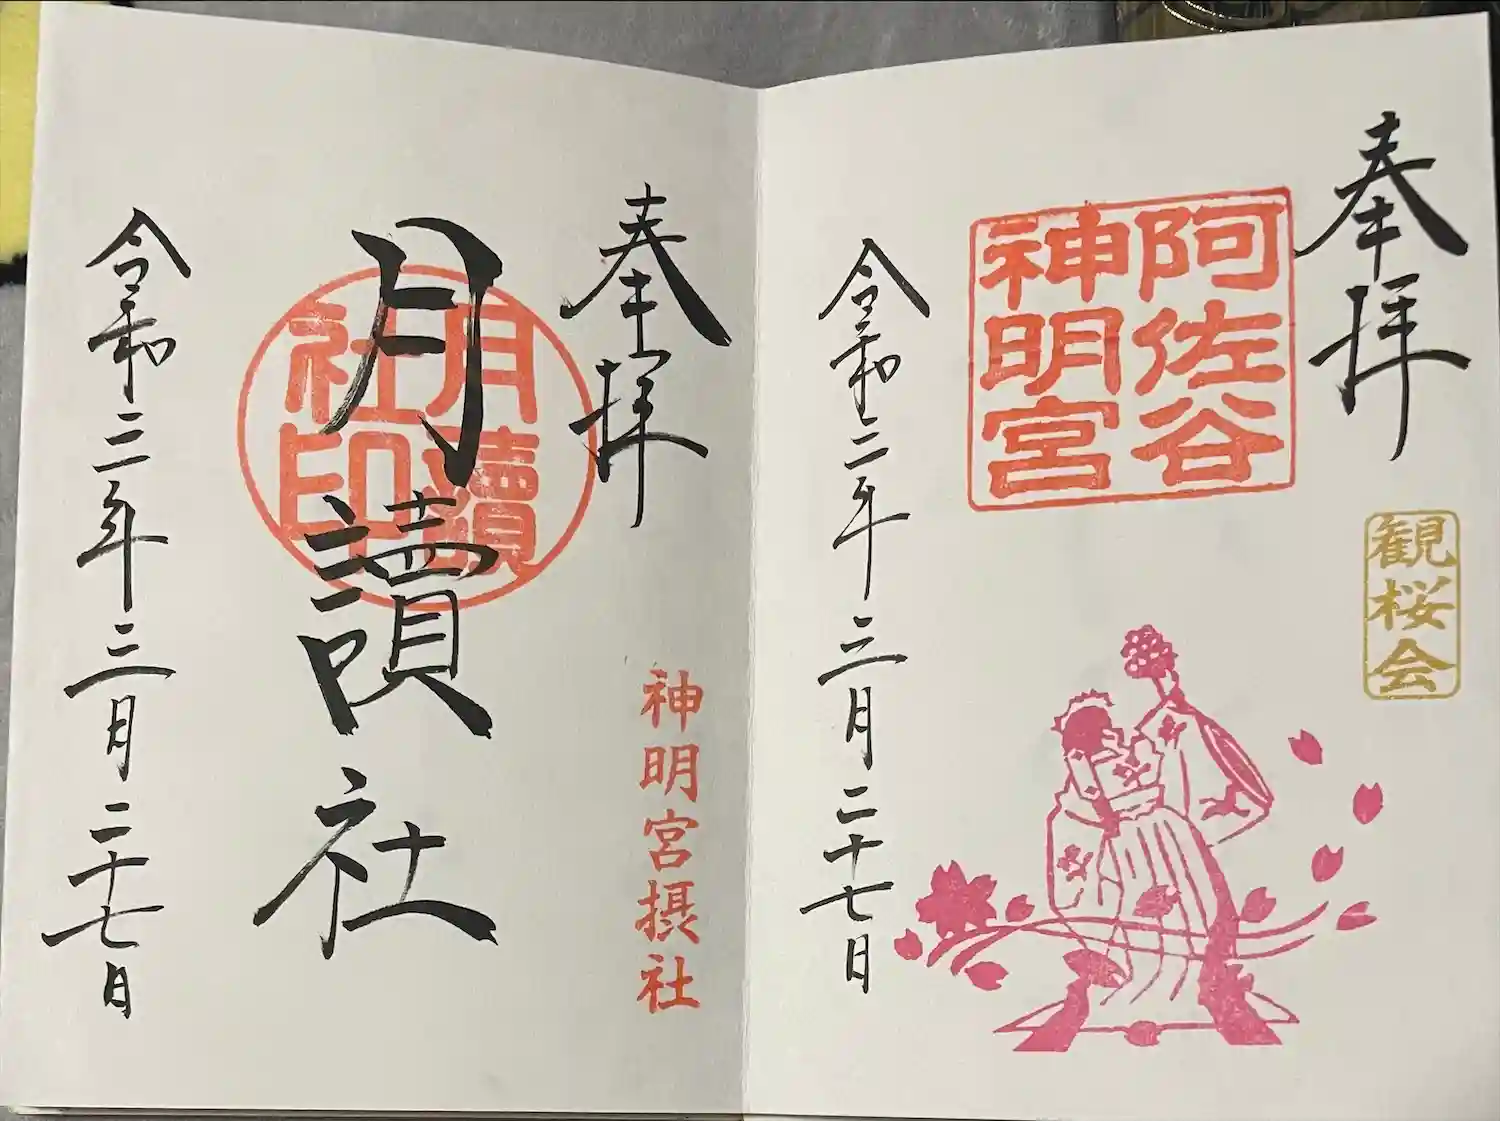 奉拝
阿佐谷
神明宮
観桜会
令和三年三月二十七日
奉拝
神明宮摂社
月讀社
月讀
社印
令和三年三月二十七日